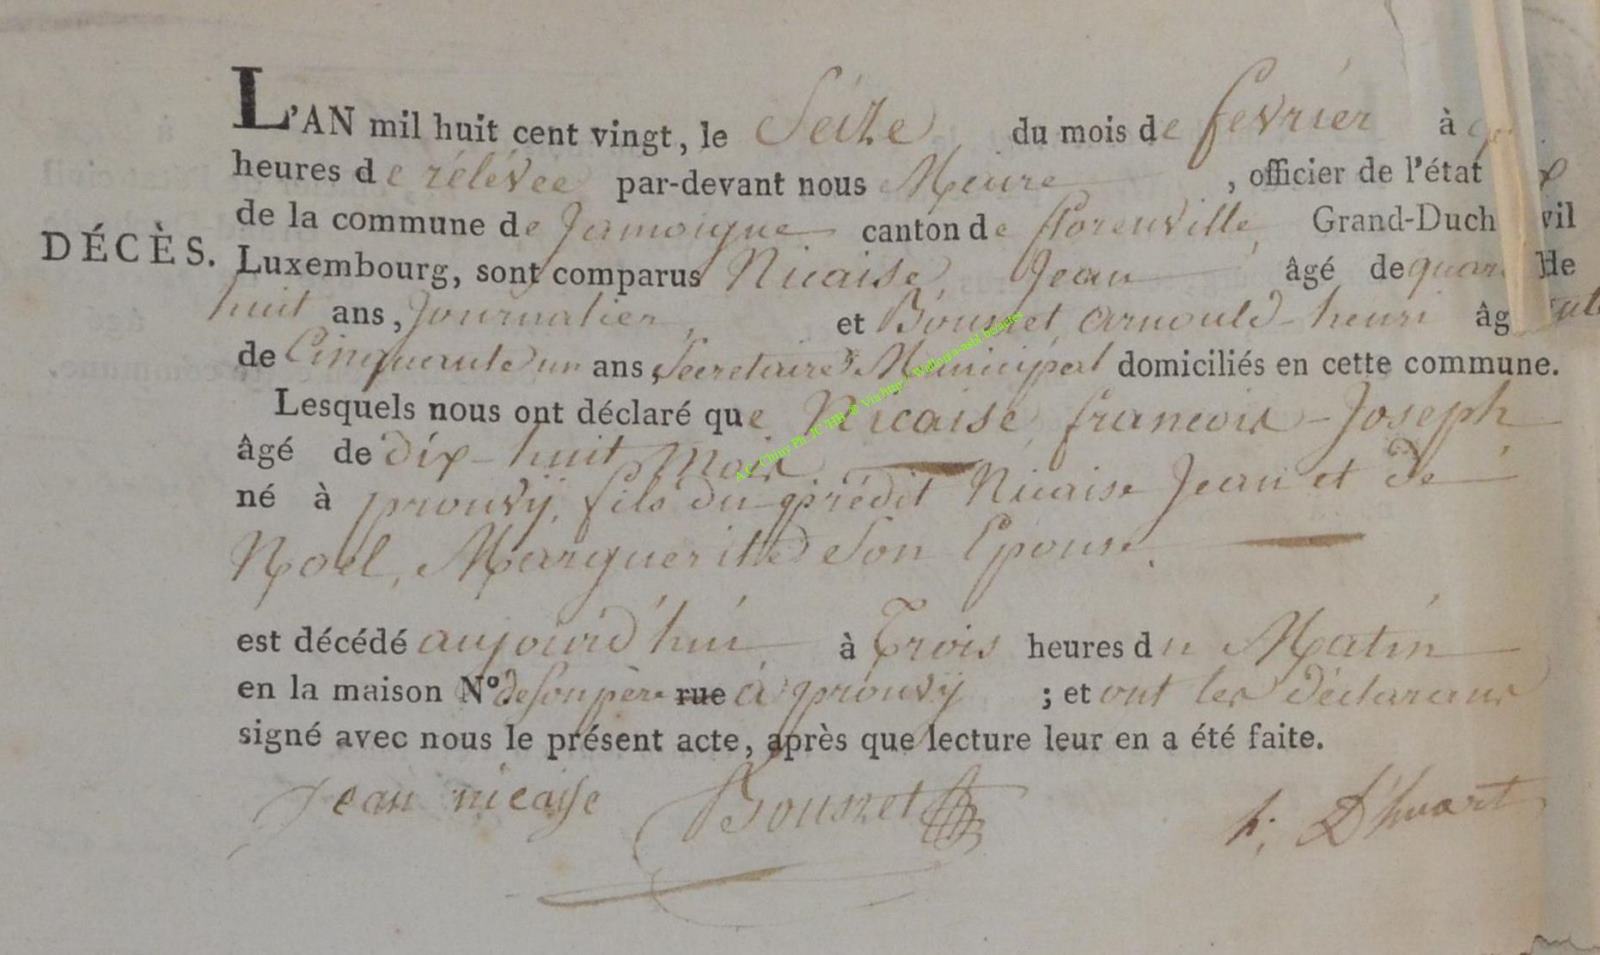 L'AN mil huit cent vingt, le Seize du mois de fevrier à
heures de rélévée par-devant nous Meire, officier de l'état vil
de la commune de Jamoigne canton de florenville, Grand-Duch
DÉCÈS.
Luxembourg, sont comparus Nicaise, Jean âgé de quar de
huit ans, Journalier, et Bousret, arnould-henri âg
de Cinquante un ans, Secretaire Municipal domiciliés en cette commune.
Lesquels nous ont déclaré que Nicaise, francois-Joseph
âgé de dix-huit Mois
né à prouvÿ, fils du prédit Nicaise Jean et de
Noël, Marguerite Son Epouse.
est décédé aujourd'hui à Trois heures du Matin
en la maison N° de Son père rue à prouvÿ ; et ont les déclarans
signé avec nous le présent acte, après que lecture leur en a été faite.
Jean nicaise Bousret h: D'huart